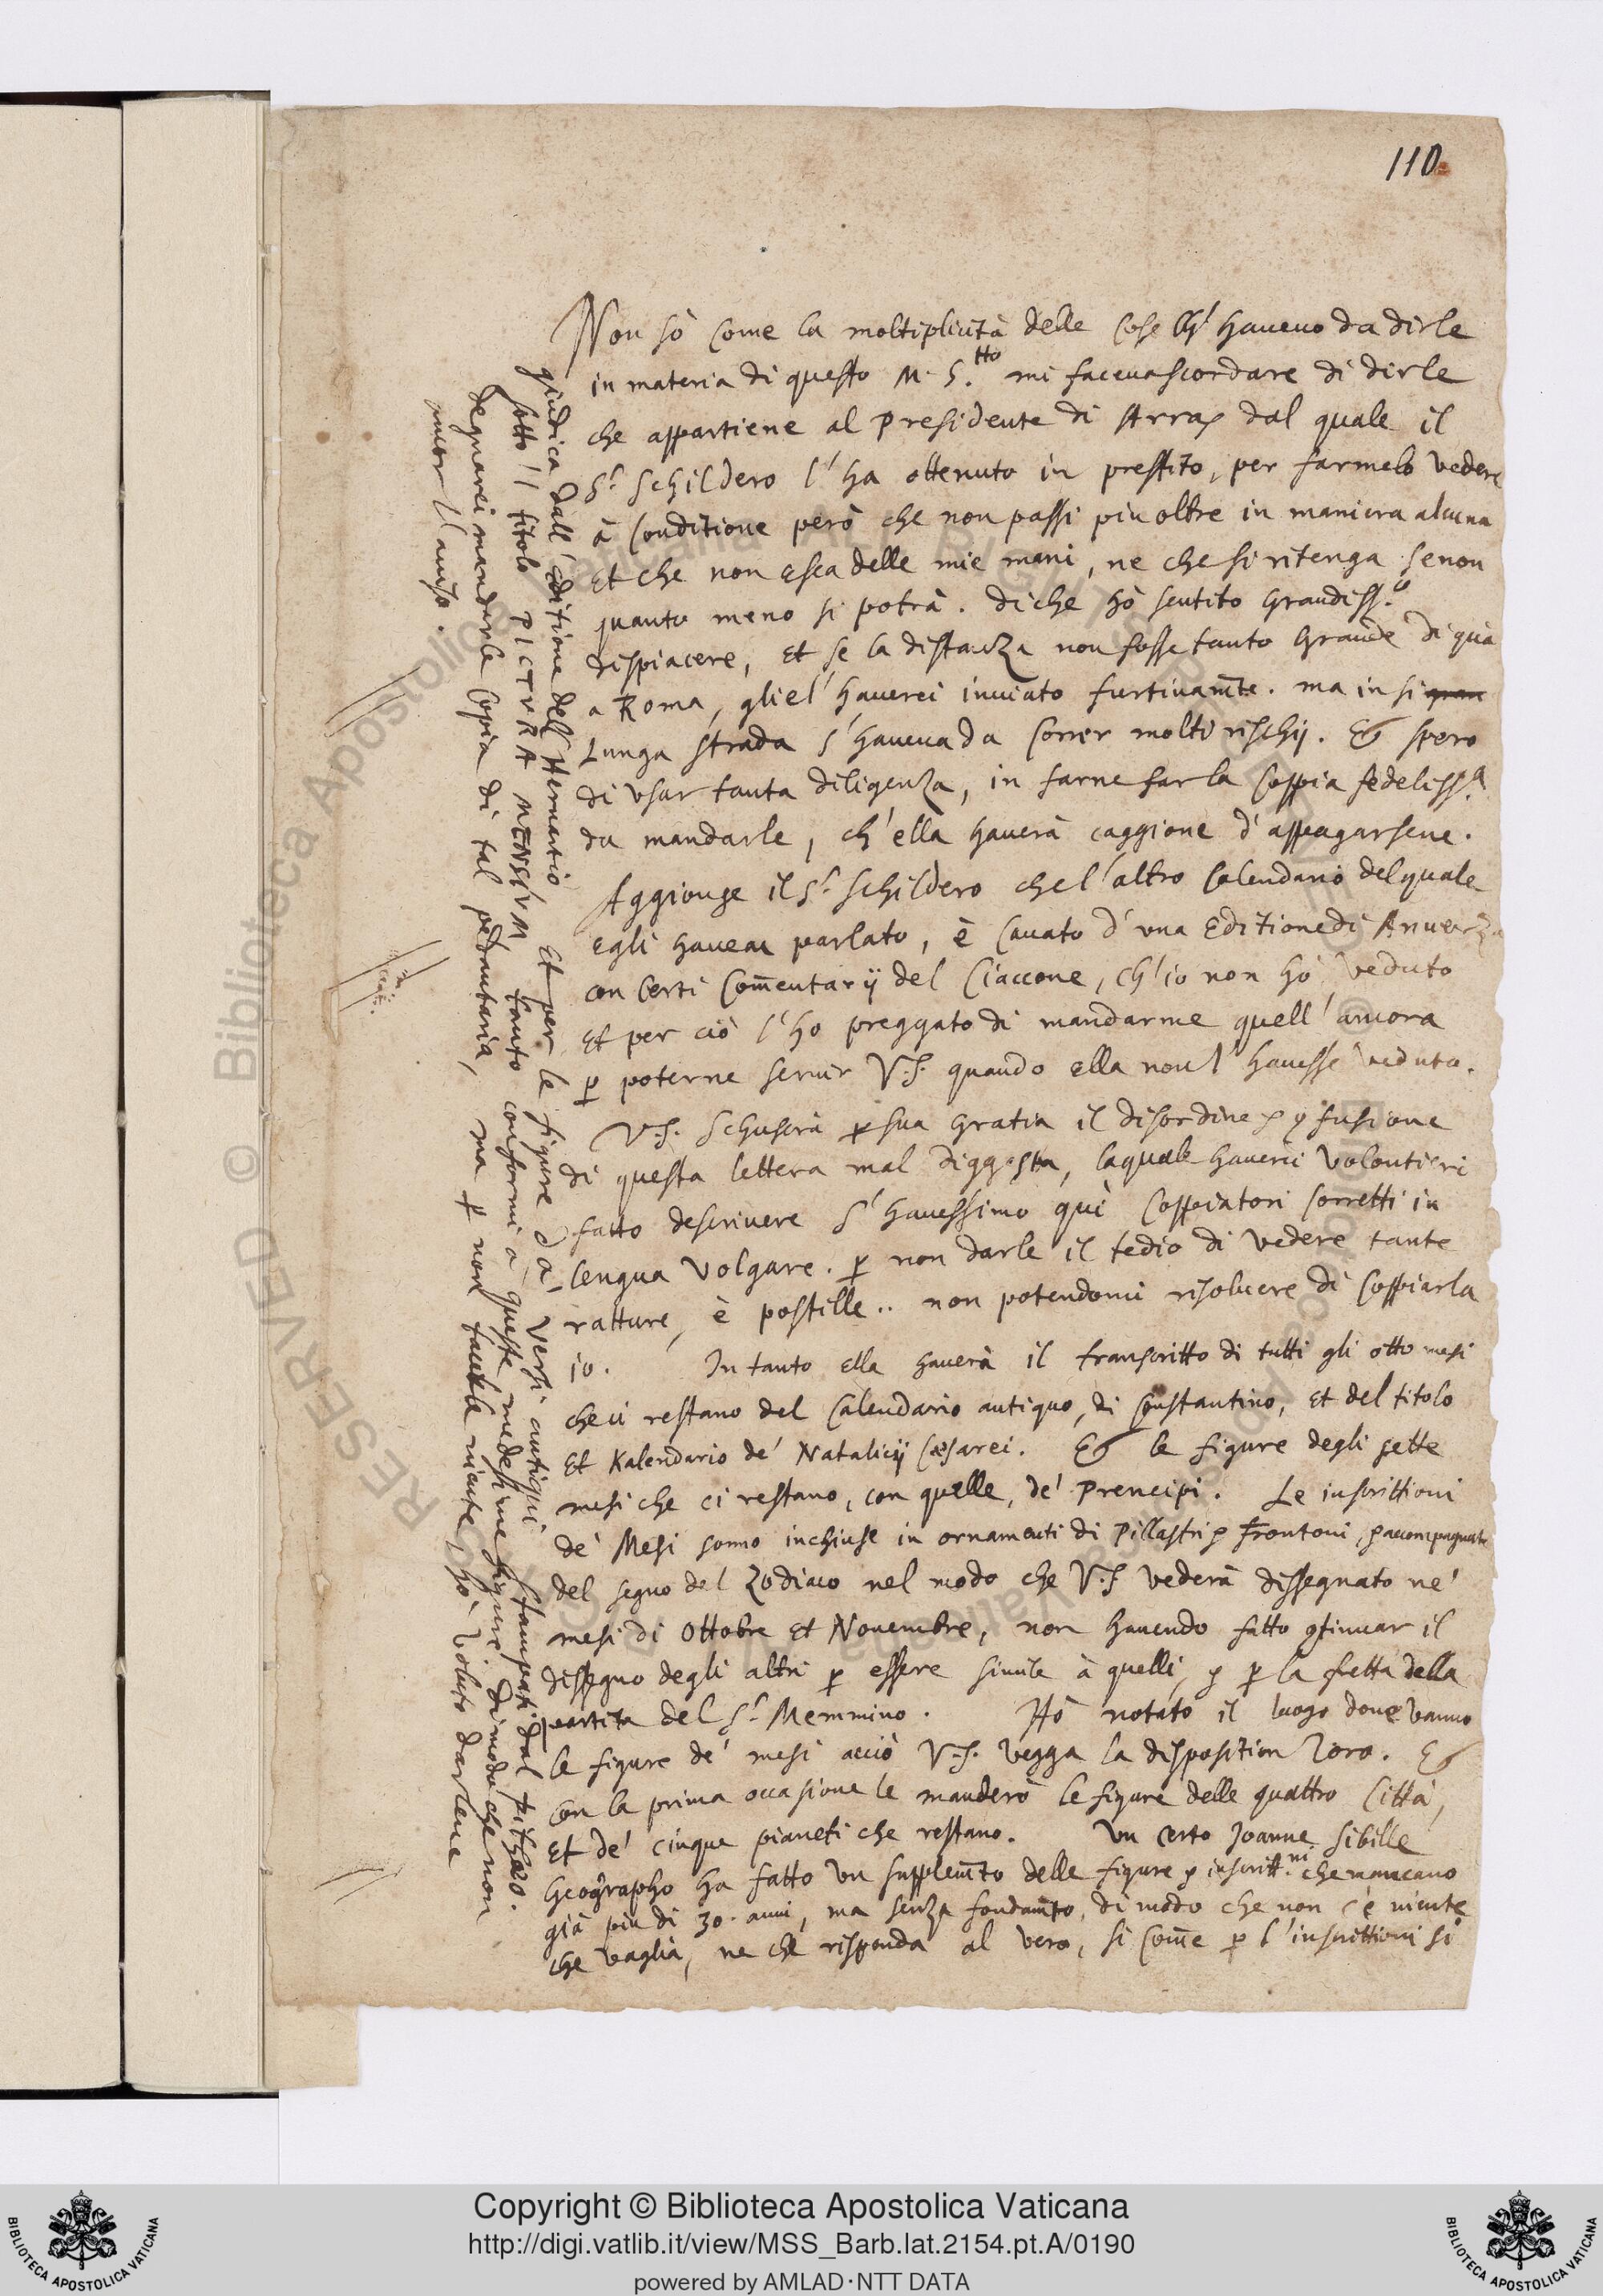 110.
Non sò come la moltiplicità delle cose ch' haveuo da dirle
in materia di questo M. S.tto mi faceua scordare di dirle
che appartiene al Presidente di Arras dal quale il
S.r Schildero l'ha ottenuto in prestito, per farmelo vedere
à conditione però che non passi piu oltre in maniera alcuna
et che non esca delle mie mani, ne che si ritenga se non
quanto meno si potrà. Di che hò sentito grandiss.o
dispiacere, et se la distanza non fosse tanto grande di quà
a Roma, gliel' hauerei inuiato furtiuam̄te. ma in si
lunga strada s'haueua da correr molti rischij. Et spero
di vsar tanta diligenza, in farne far la coppia fedeliss.a
da mandarle, ch'ella hauerà caggione d'appagarsene.
Aggionge il S.r Schildero che l'altro Calendario del quale
egli haueua parlato, è cauato d'una Editione di Anuerza
con certi Com̄entarij del Ciaccone, ch'io non hò veduto
et per ciò l'ho preggato di mandarme quell'ancora
p poterne seruir V.S. quando ella non l'hauesse veduto.
V.S. scuserà p sua gratia il disordine et confusione
di questa lettera mal diggesta, la quale hauerei volontieri
fatto descriuere s'hauessimo quì coppiatori corretti in
lengua volgare. p non darle il tedio di vedere tante
ratture, è postille.. non potendomi risoluere di coppiarla
io. In tanto ella hauerà il transcritto di tutti gli otto mesi
che ci restano del Calendario antiquo, di Constantino, et del titolo
et Kalendario de' Natalicij Cæsarei. Et le figure degli sette
mesi che ci restano, con quelle, de' Prencipi. Le inscrittioni
de' Mesi sonno inchiuse in ornamenti di Pillastri et Frontoni, et accompagnate
del segno del Zodiaco nel modo che V.S. vederà dissegnato ne'
mesi di Ottobre et Nouembre, non hauendo fatto continuar il
dissegno degli altri p essere simile à quelli, et p la fretta della
partita del S.r Memmino. Hò notato il luogo doue vanno
le figure de' mesi acciò V.S. vegga la disposition loro. Et
con la prima occasione le manderò le figure delle quattro Città,
et de' cinque pianeti che restano. Un certo Joanne Sibille
Geographo ha fatto un supplem̄to delle figure et inscritt.ni che mancano
già piu di 30. anni, ma senza fondam̄to, di modo che non c'è niente
che vaglia, ne che risponda al vero, si com̄e p l'inscrittioni si
giudica dall'Editione dell'Hernartio et per le figure da' versi antiqui stampati dal Pithæo.
sotto il titolo PICTVRA MENSIVM tanto conformi a queste medesime figure. Di modo che non
degnarei mandarle copia di tal pedantaria, ma p non tacerle niente, hò voluto darlene
ancor l'auiso.
RESERVED © Biblioteca Apostolica Vaticana
Copyright © Biblioteca Apostolica Vaticana
http://digi.vatlib.it/view/MSS_Barb.lat.2154.pt.A/0190
powered by AMLAD·NTT DATA
BIBLIOTECA APOSTOLICA VATICANA
BIBLIOTECA APOSTOLICA VATICANA